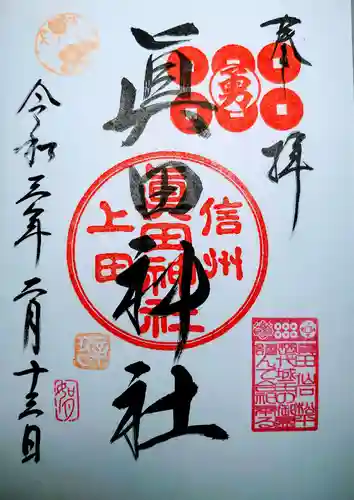 奉拝
勇
眞田神社
信州
上田
眞田神社
令和三年二月十三日